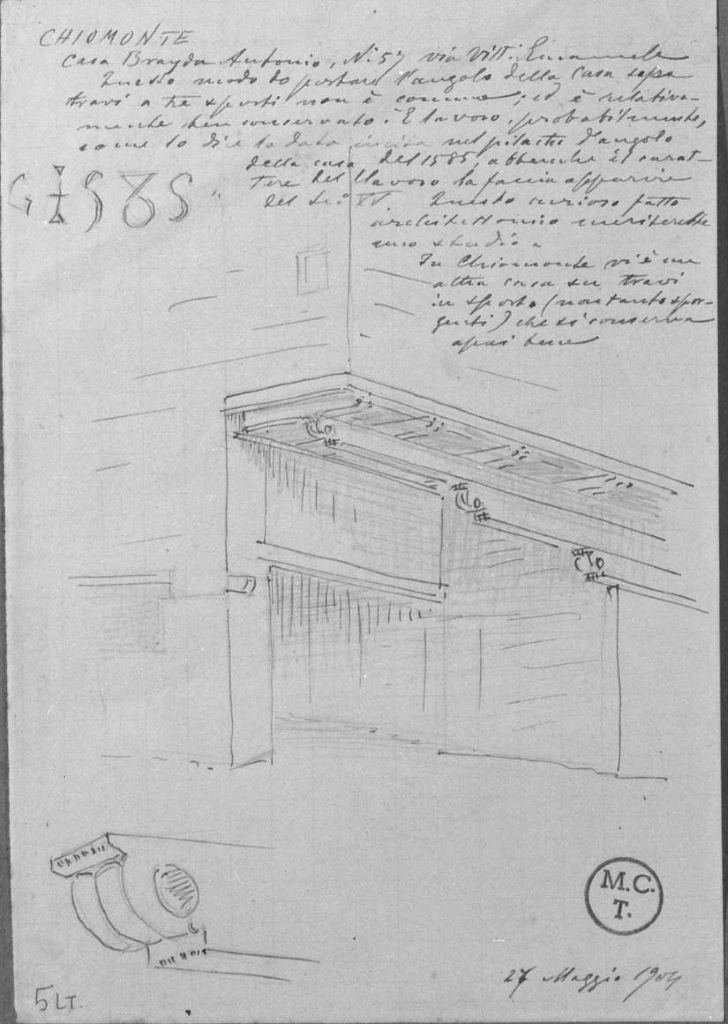 CHIOMONTE
Casa Brayda Antonio, N. 57 via Vitt. Emanuele
Questo modo di portare l'angolo della casa sopra
travi a tre sporti non è comune; ed è relativa-
mente ben conservato. È lavoro, probabilmente,
come lo dice la data incisa nel pilastro d'angolo
della casa del 1585, abbenchè il carat-
tere del lavoro la faccia apparire
del sec. XV. Questo curioso fatto
architettonico meriterebbe
uno studio.
In Chiomonte vi è un
altra casa su travi
in sporto (non tanto spor-
genti) che si conserva
assai bene
M.C.
T.
27 Maggio 1904
5 LT.